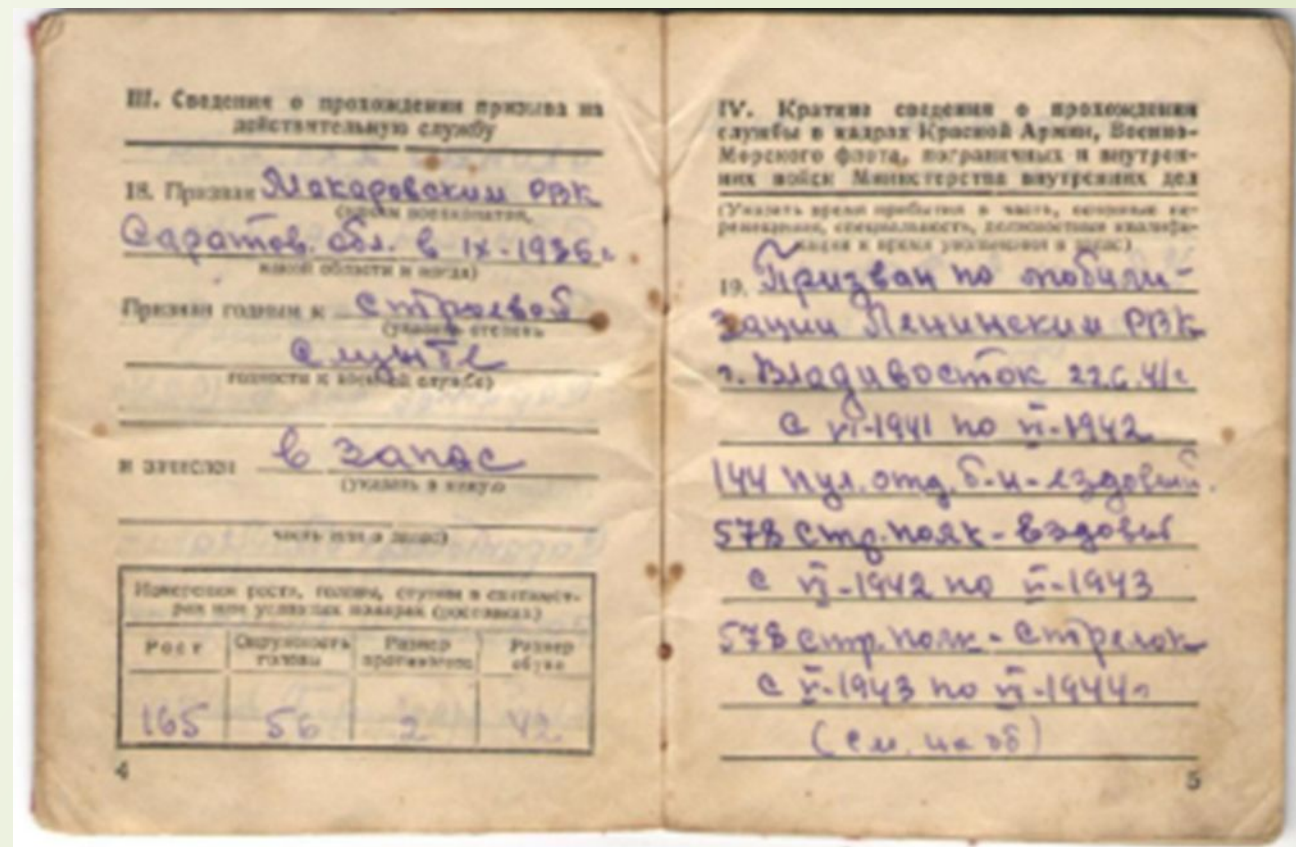 III. Сведения о прохождении призыва на
действительную службу
18. Призван Макаровским РВК
(каким военкоматом,
Саратов. обл. в IX-1936 г
какой области и когда)
Признан годным к строевой
(указать степень
службе
годности к военной службе)
и зачислен в запас
(указать в какую
часть или в запас)
Измерения роста, головы, ступни в сантимет-
рах или условных номерах (ростовках)
Рост
Окружность головы
Размер противогаза
Размер обуви
165
56
2
42
4
IV. Краткие сведения о прохождении
службы в кадрах Красной Армии, Военно-
Морского флота, пограничных и внутрен-
них войск Министерства внутренних дел
(Указать время прибытия в часть, основные пе-
ремещения, специальность, должностная квалифи-
кация и время увольнения в запас)
19. Призван по мобили-
зации Ленинским РВК
г. Владивосток 22.6.41г
с VI-1941 по VI-1942
144 пул. отд. б-н-ездовый.
578 стр. полк - ездовый
с VI-1942 по
578 стр. полк - стрелок
(см. на об)
5